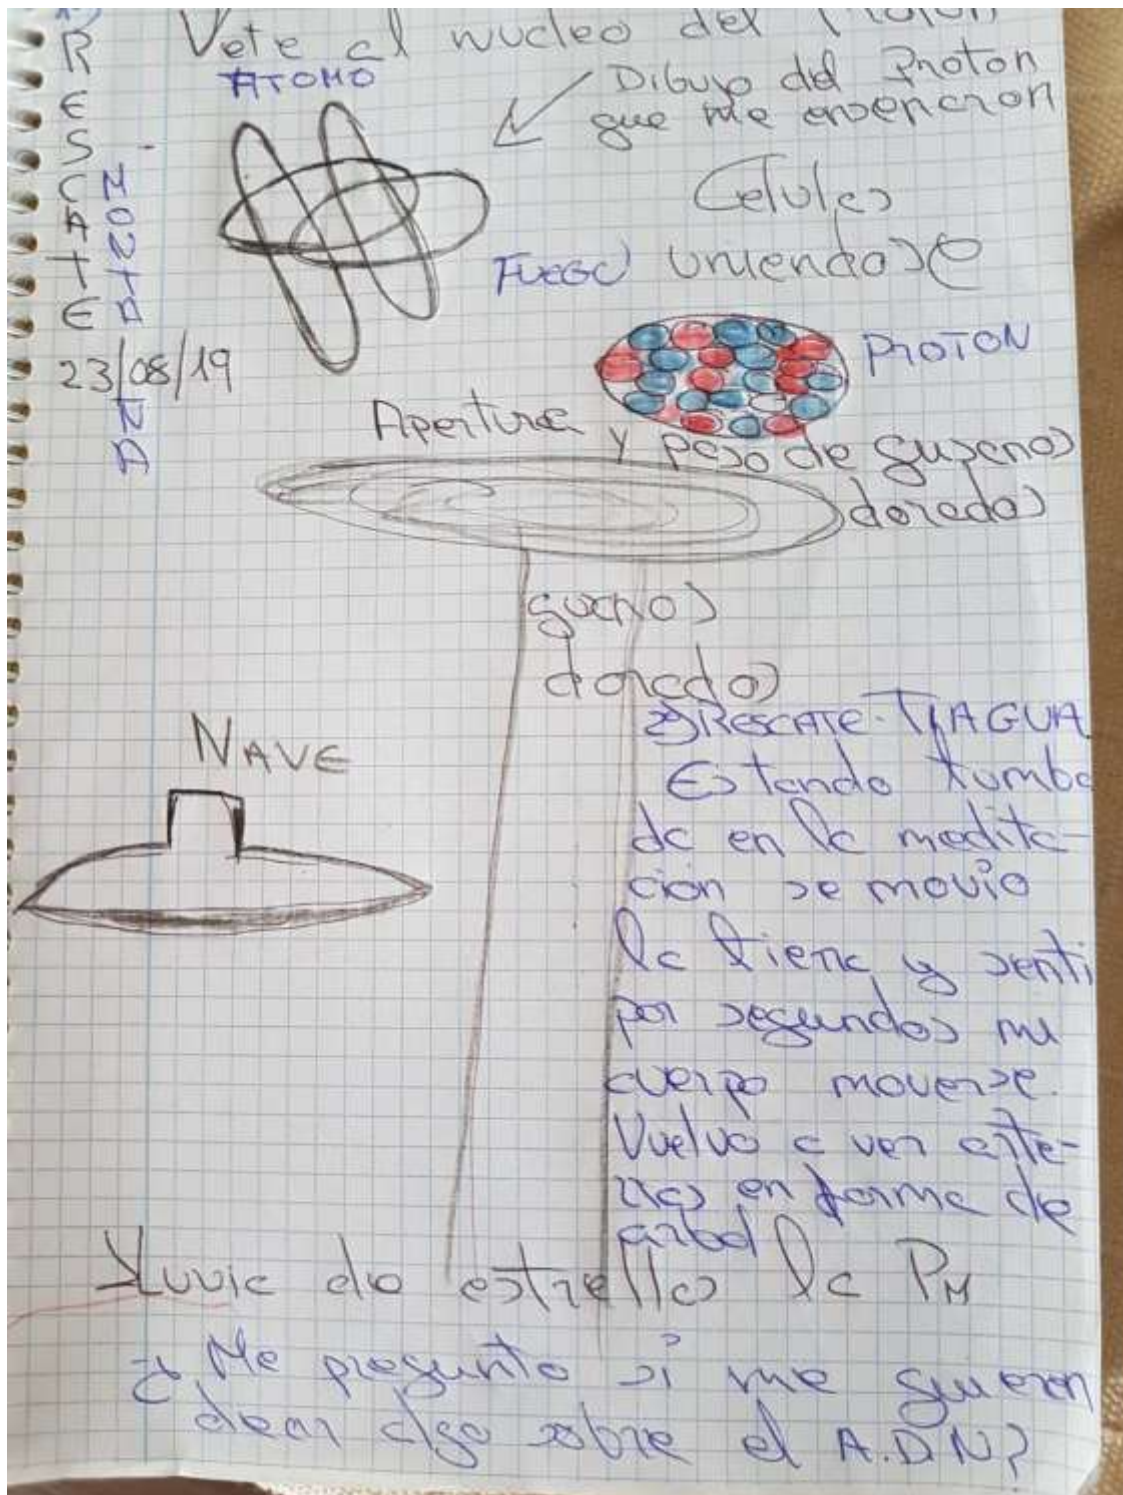 RESCATE
23/08/19
Vete al nucleo del Proton
ATOMO
Dibujo del Proton
que me enseñaron
Celulas
Fuego uniendose
PROTON
Apertura y paso de gusanos
dorados
gusanos
dorados
NAVE
2º) RESCATE TIAGUA
Estando tumba
da en la medita-
ción se movio
la tierra y senti
por segundos mi
cuerpo moverse.
Vuelvo a ver arte-
rias en forma de
arbol
Lluvia de estrellas la PM
¿ Me pregunto si me quieren
decir algo sobre el A.D.N?